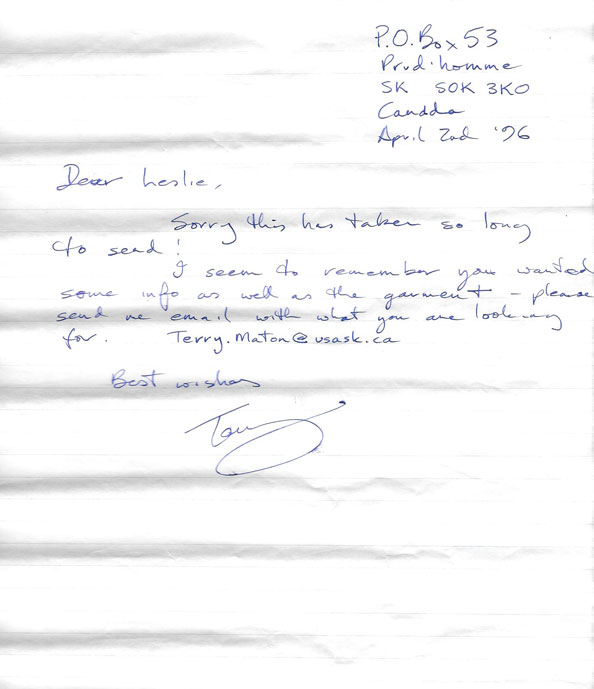 P.O. Box 53
Prud'homme
SK S0K 3K0
Canada
April 2nd '96
Dear Leslie,
Sorry this has taken so long
to send!
I seem to remember you wanted
some info as well as the garment - please
send me email with what you are looking
for. Terry.Maton@usask.ca
Best wishes
Terry